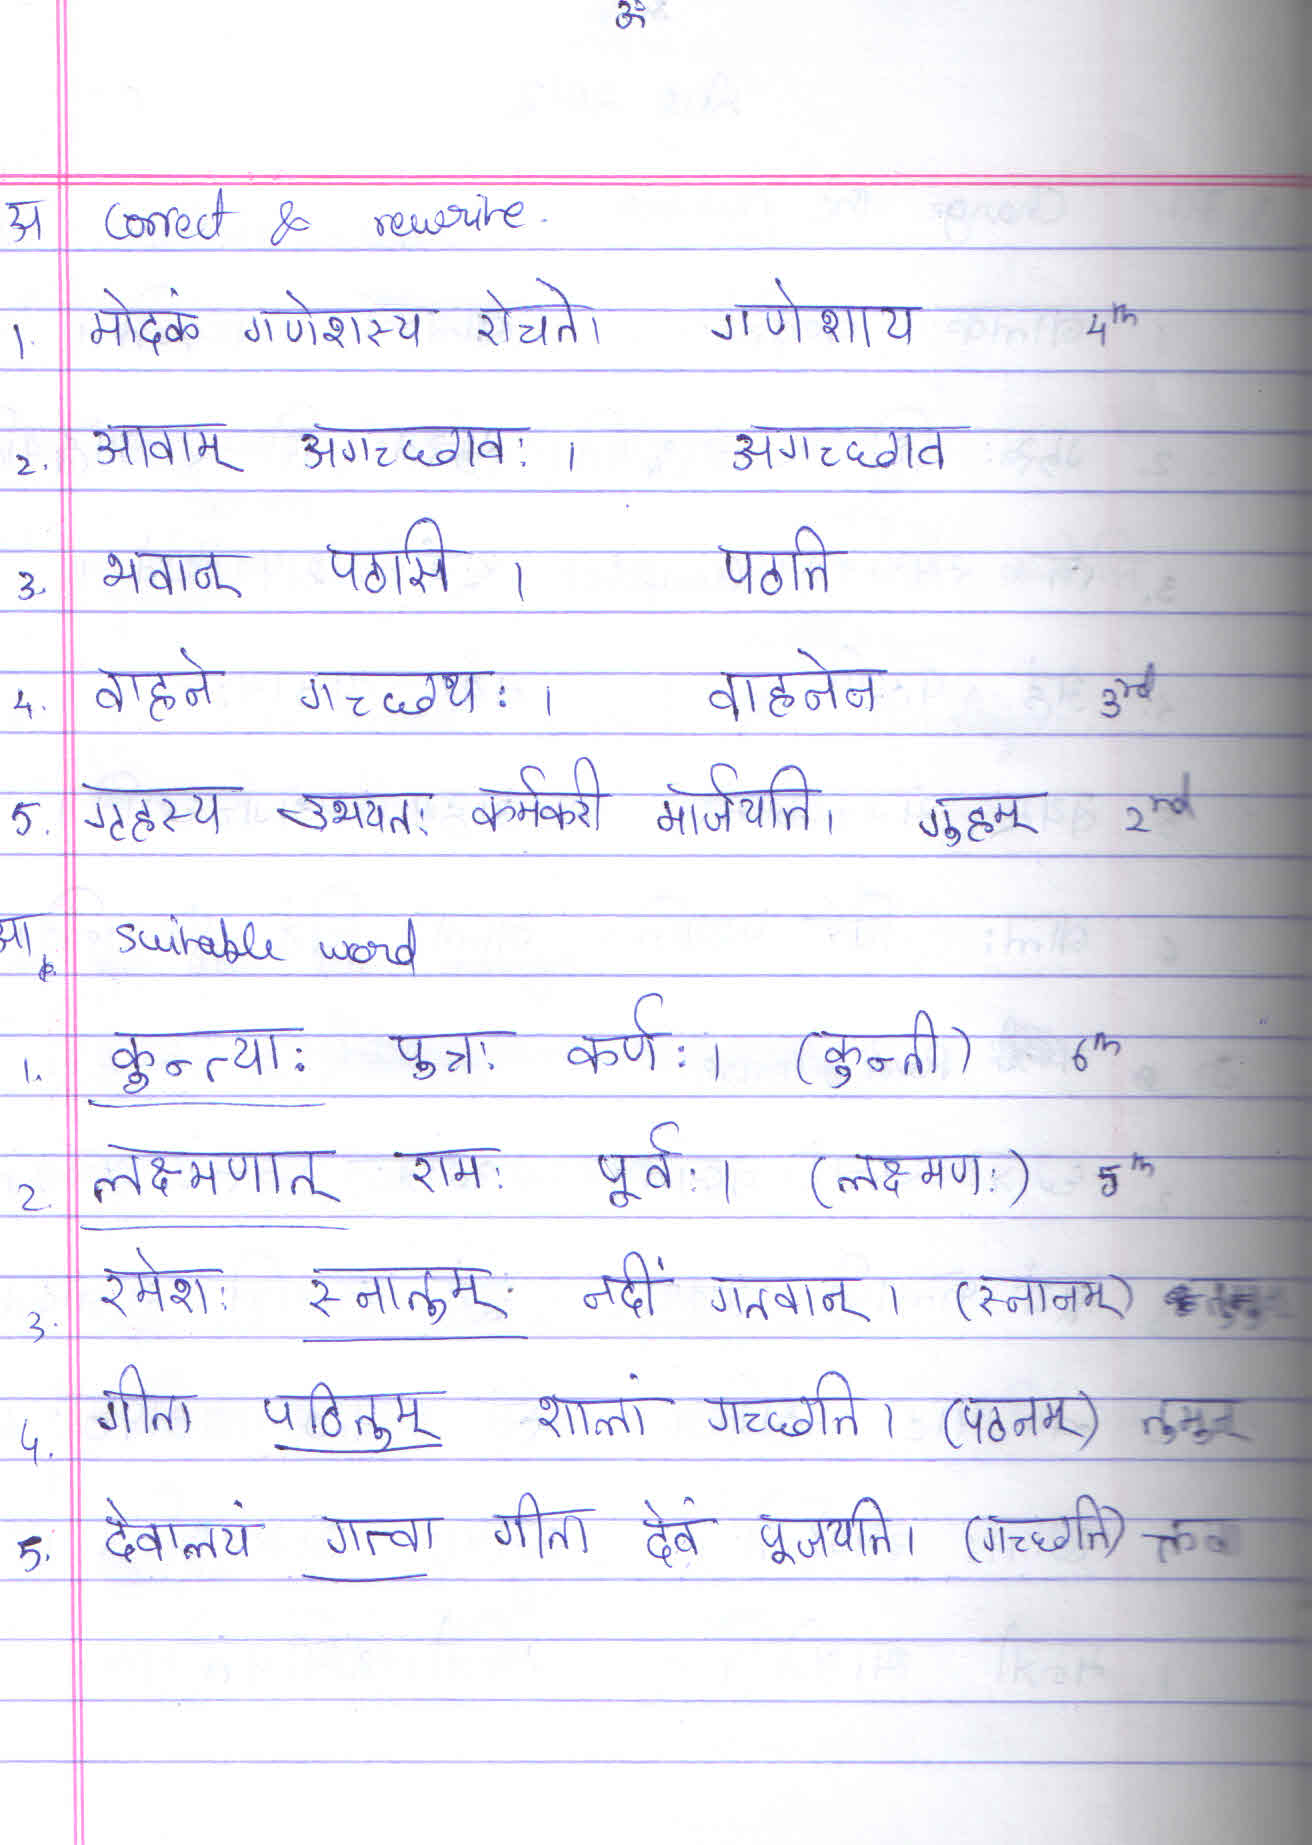 ॐ
अ Correct & rewrite.
1. मोदकं गणेशस्य रोचते। गणेशाय 4th
2. आवाम् अगच्छावः। अगच्छाव
3. भवान् पठसि। पठति
4. वाहने गच्छथः। वाहनेन 3rd
5. गृहस्य उभयतः कर्मकरी मार्जयति। गृहम् 2nd
आ. suitable word
1. कुन्त्याः पुत्रः कर्णः। (कुन्ती) 6th
2. लक्ष्मणात् रामः पूर्वः। (लक्ष्मणः) 5th
3. रमेशः स्नातुम् नदीं गतवान्। (स्नानम्)
4. गीता पठितुम् शालां गच्छति। (पठनम्) तुमुन्
5. देवालयं गत्वा गीता देवं पूजयति। (गच्छति)